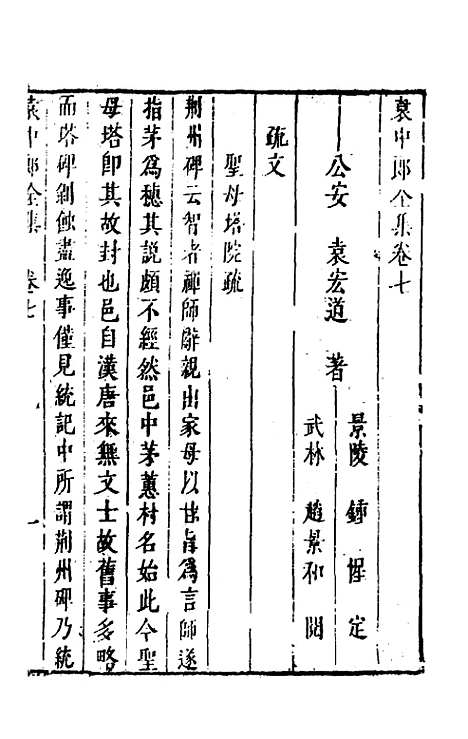 袁中郎全集卷七
公安　袁宏道　著
景陵　鍾惺　定
武林　趙景和　閱
疏文
聖母塔院疏
荆州碑云智者禪師辭親出家母以甘旨爲言師遂
指茅爲穗其說頗不經然邑中茅蕙村名始此今聖
母塔卽其故封也邑自漢唐來無文士故舊事多略
而塔碑剝蝕盡逸事僅見統記中所謂荆州碑乃統
袁中郎全集　卷七　一